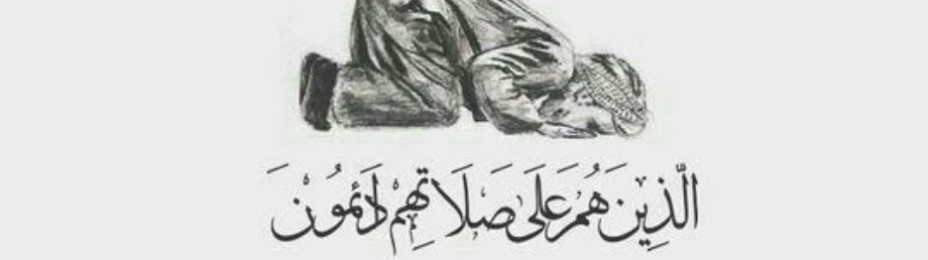 الَّذِينَ هُمْ عَلَى صَلَاتِهِمْ دَائِمُونَ